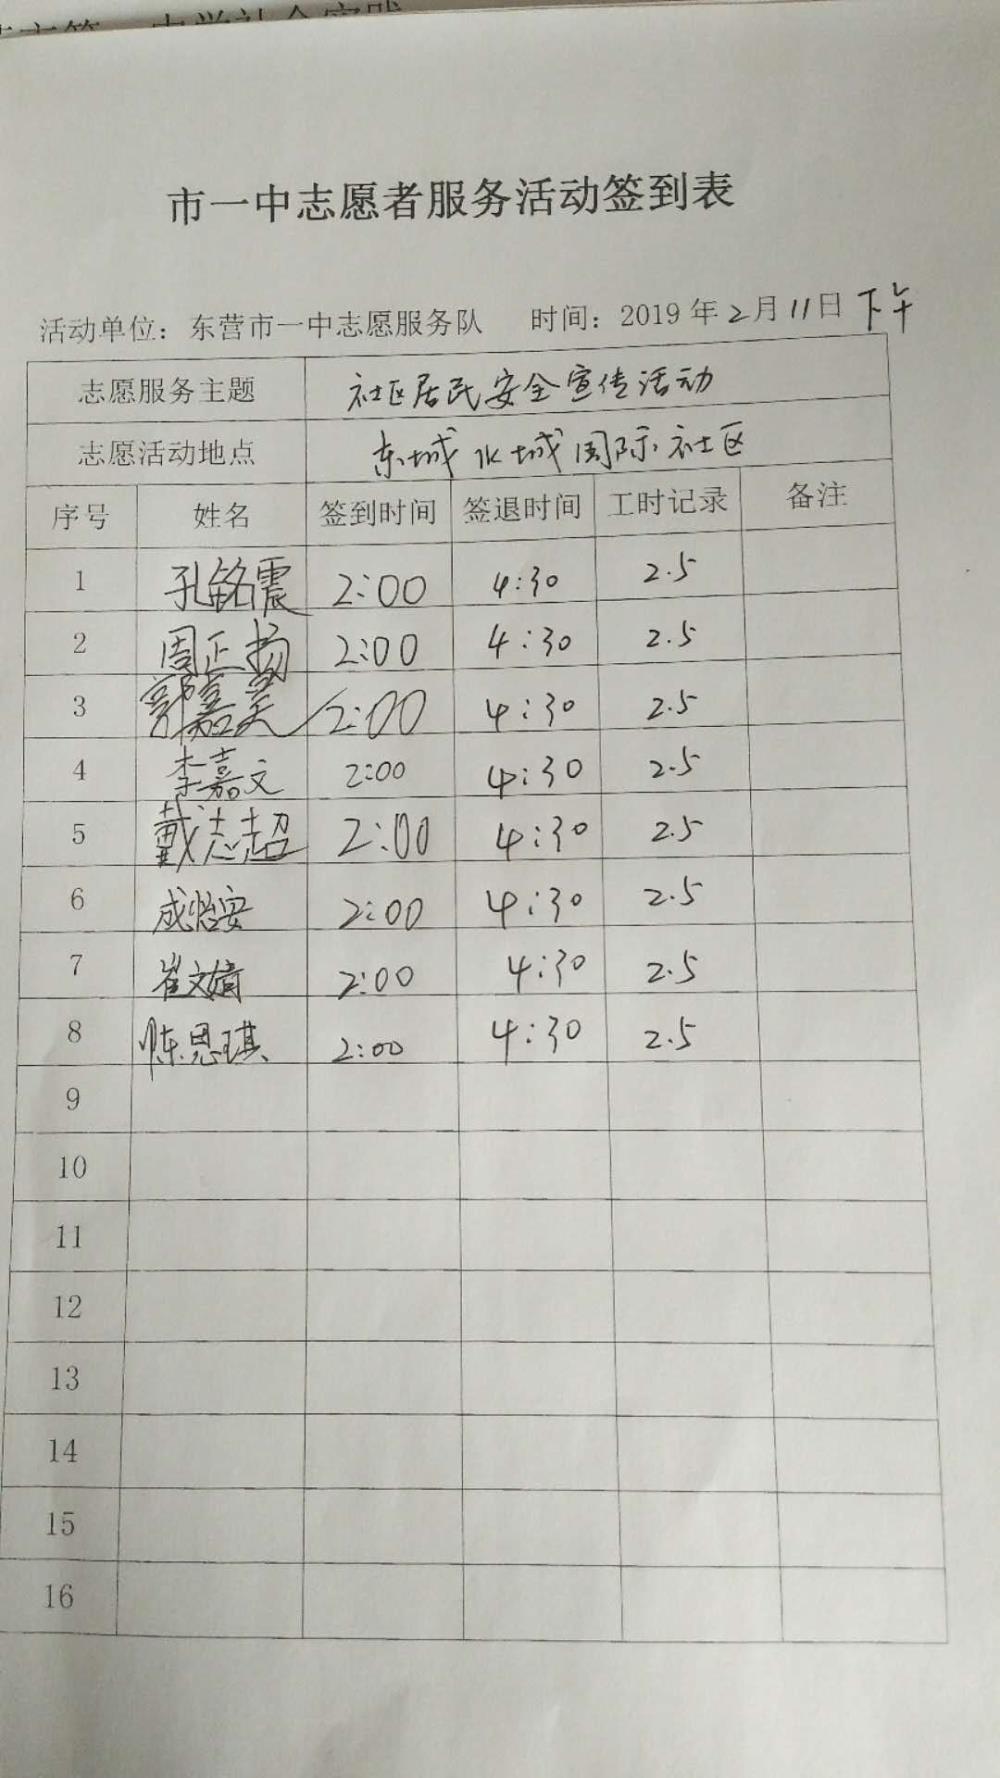 市一中志愿者服务活动签到表
活动单位：东营市一中志愿服务队 时间：2019年2月11日下午
志愿服务主题 社区居民安全宣传活动
志愿活动地点 东城水城国际社区
序号 姓名 签到时间 签退时间 工时记录 备注
1 孔铭震 2:00 4:30 2.5
2 周正扬 2:00 4:30 2.5
3 郭嘉昊 2:00 4:30 2.5
4 李嘉文 2:00 4:30 2.5
5 戴志超 2:00 4:30 2.5
6 成怡安 2:00 4:30 2.5
7 崔文婧 2:00 4:30 2.5
8 陈思琪 2:00 4:30 2.5
9
10
11
12
13
14
15
16